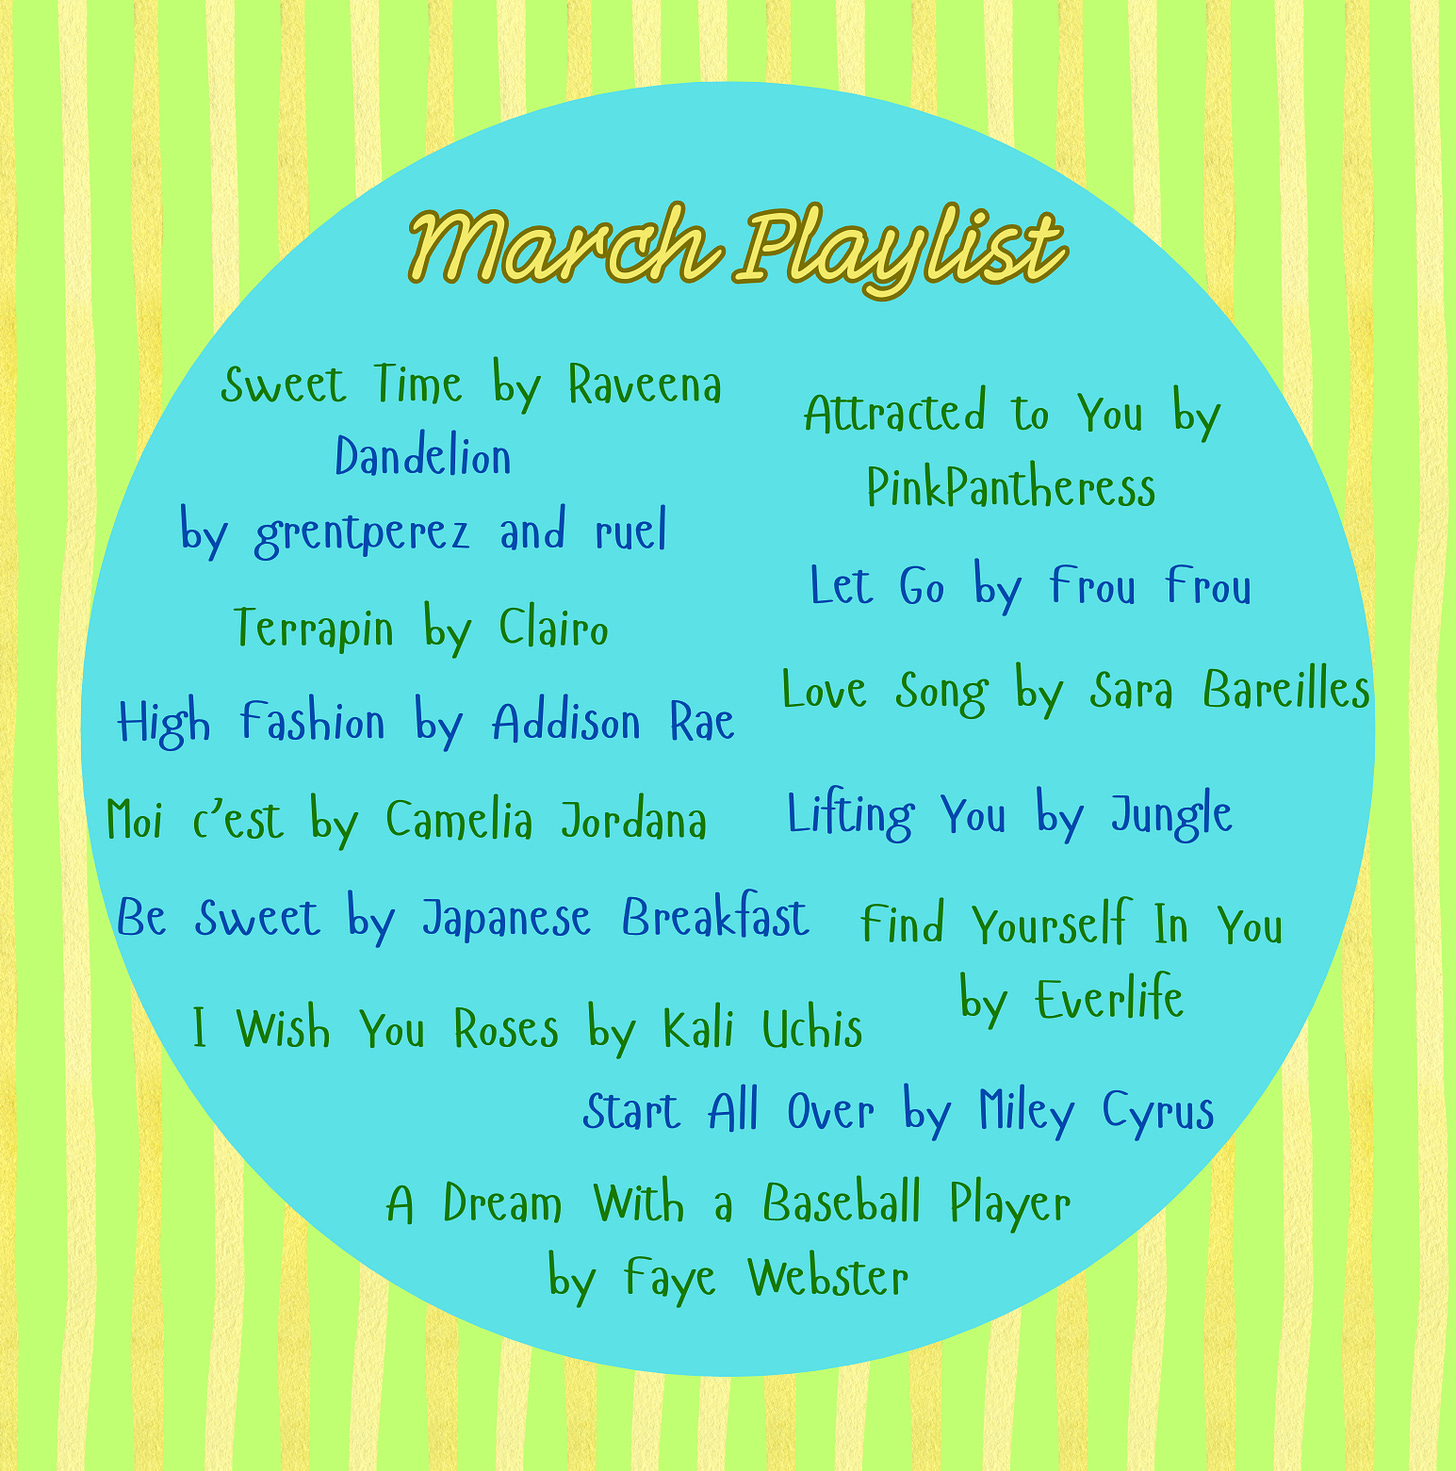 March Playlist
Sweet Time by Raveena
Dandelion
by grentperez and ruel
Terrapin by Clairo
High Fashion by Addison Rae
Moi c'est by Camelia Jordana
Be Sweet by Japanese Breakfast
I Wish You Roses by Kali Uchis
Attracted to You by
PinkPantheress
Let Go by Frou Frou
Love Song by Sara Bareilles
Lifting You by Jungle
Find Yourself In You
by Everlife
Start All Over by Miley Cyrus
A Dream With a Baseball Player
by Faye Webster